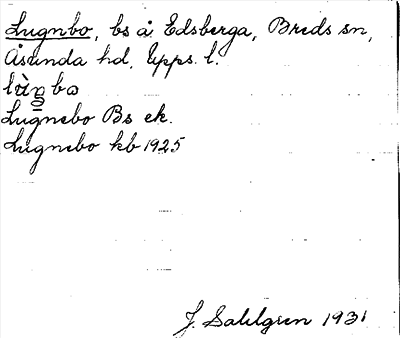 Lugnbo, bs å Edsberga, Breds sn,
Åsunda hd, Upps. l.
Lugnebo Bs ek.
Lugnebo kb 1925
J. Sahlgren 1931